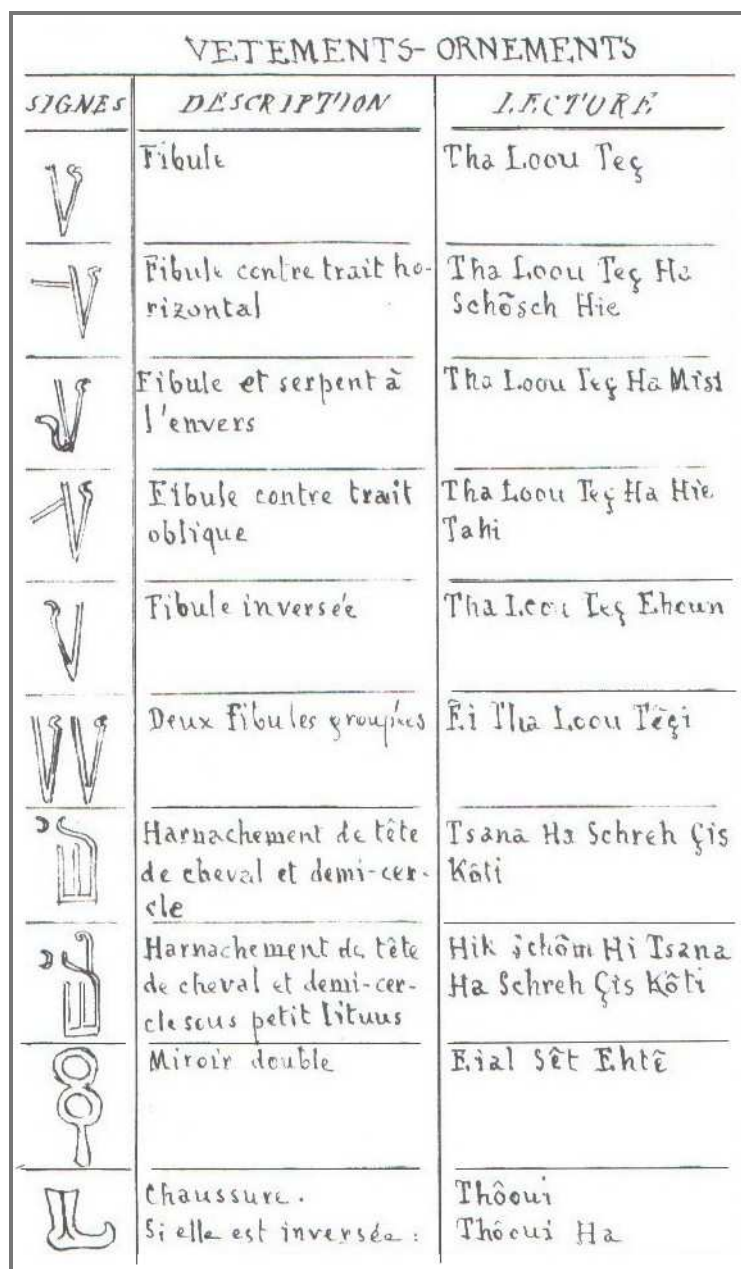 VETEMENTS-ORNEMENTS
SIGNES DESCRIPTION LECTURE
Fibule
Tha Loou Teç
Fibule contre trait ho-
rizontal
Tha Loou Teç Ha
Schõsch Hie
Fibule et serpent à
l'envers
Tha Loou Teç Ha Misi
Fibule contre trait
oblique
Tha Loou Teç Ha Hie
Tahi
Fibule inversée
Tha Loou Teç Ehoun
Deux Fibules groupées
Êi Tha Loou Têçi
Harnachement de tête
de cheval et demi-cer-
cle
Tsana Ha Schreh Çis
Kôti
Harnachement de tête
de cheval et demi-cer-
cle sous petit lituus
Hik Schôm Hi Tsana
Ha Schreh Çis Kôti
Miroir double
Eial Sêt Ehtê
Chaussure.
Si elle est inversée :
Thôoui
Thôoui Ha